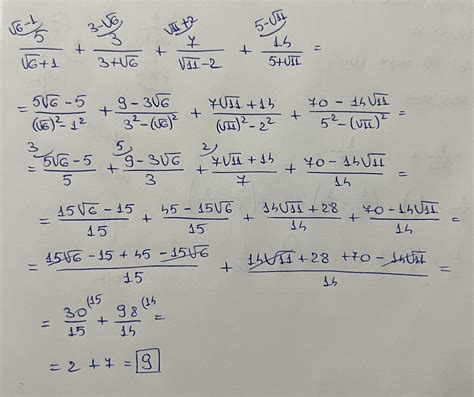 √6-1 3-√6 √11+2 5-√11
5/(√6+1) + 3/(3+√6) + 7/(√11-2) + 14/(5+√11) =
= (5√6-5)/((√6)²-1²) + (9-3√6)/(3²-(√6)²) + (7√11+14)/((√11)²-2²) + (70-14√11)/(5²-(√11)²) =
3 5 2
= (5√6-5)/5 + (9-3√6)/3 + (7√11+14)/7 + (70-14√11)/14 =
= (15√6-15)/15 + (45-15√6)/15 + (14√11+28)/14 + (70-14√11)/14 =
= (15√6-15+45-15√6)/15 + (14√11+28+70-14√11)/14 =
= 30/15 (15 + 98/14 (14 =
= 2 + 7 = 9